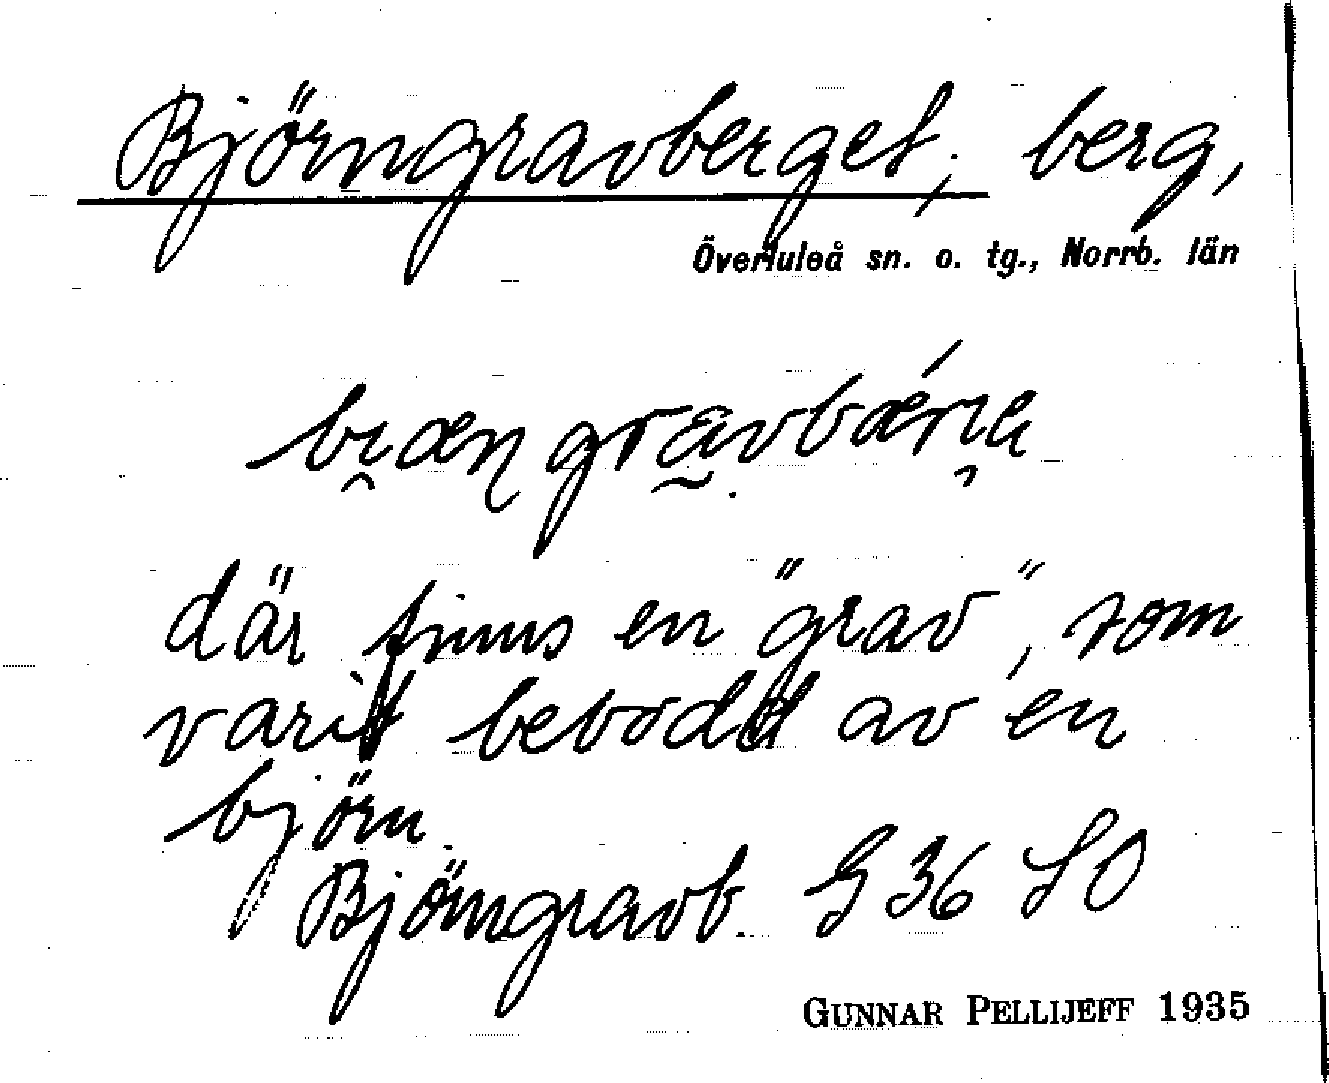 Björngravberget, berg,
Överluleå sn. o. tg., Norrb. län
där finns en "grav", som
varit bebodd av en
björn.
Björngravb. G 36 SO
GUNNAR PELLIJEFF 1935